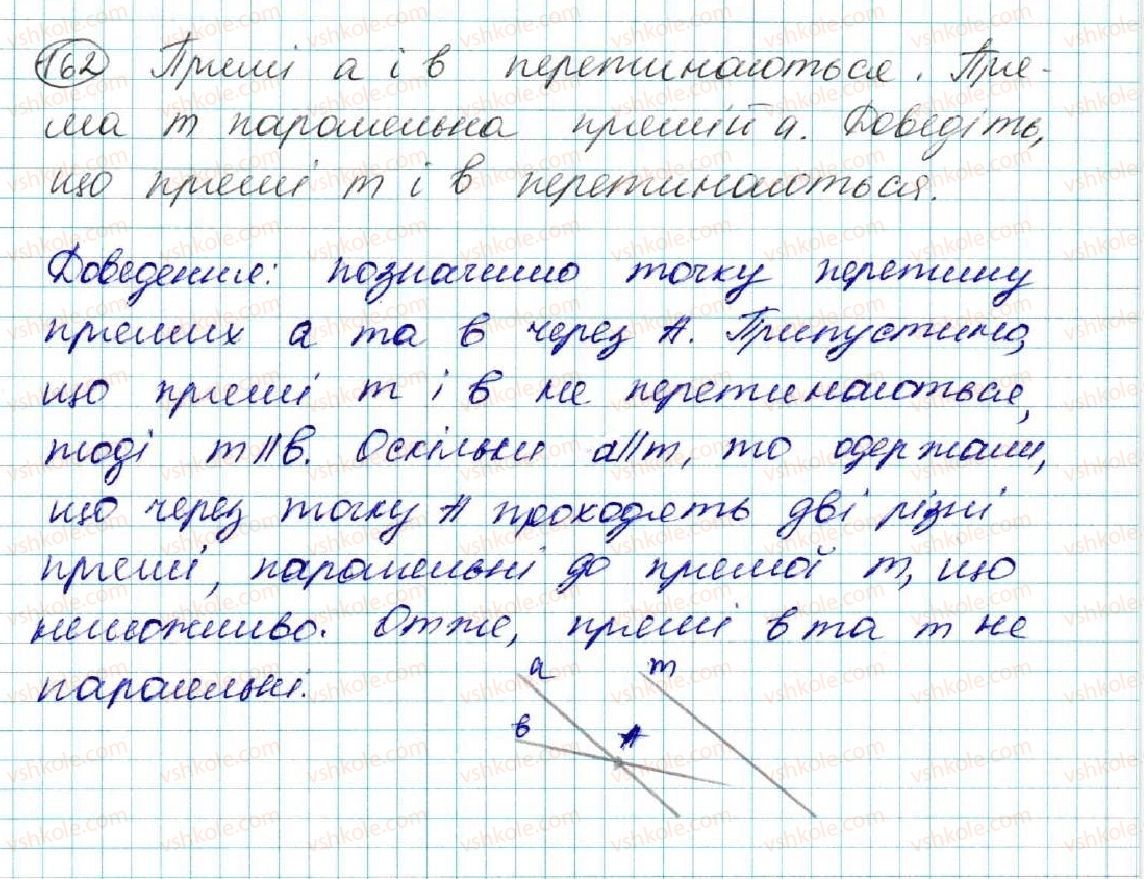 162 Прямі a і b перетинаються. Пря-
ма m паралельна прямій a. Доведіть,
що прямі m і b перетинаються.
Доведення: позначимо точку перетину
прямих a та b через A. Припустимо,
що прямі m і b не перетинаються,
тоді m||b. Оскільки a||m, то одержали,
що через точку A проходять дві різні
прямі, паралельні до прямої m, що
неможливо. Отже, прямі b та m не
паралельні.
a m
b A
vshkole.com